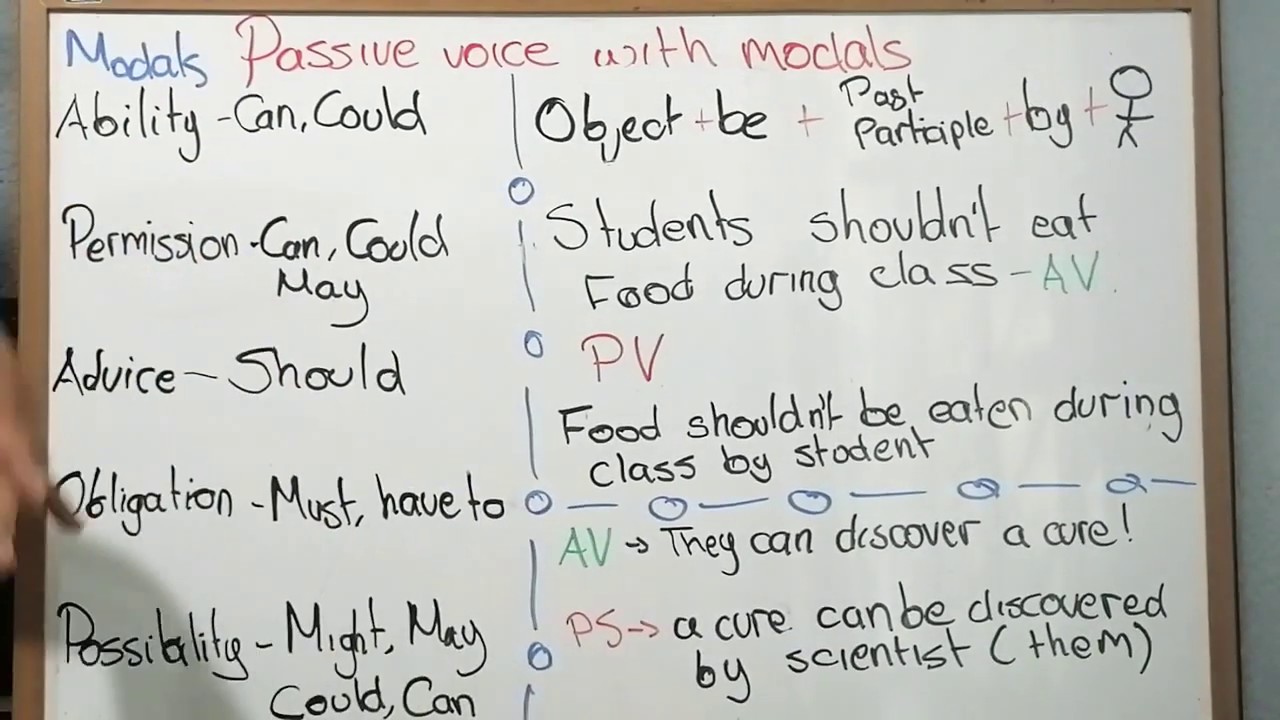 Modals Passive voice with modals
Ability - Can, Could
Permission - Can, Could
May
Advice - Should
Obligation - Must, have to
Possibility - Might, May
Could, Can
Object + be + Past Participle + by +
Students shouldn't eat
Food during class - AV.
PV
Food shouldn't be eaten during
class by student
AV → They can discover a cure!
PS → a cure can be discovered
by scientist (them)